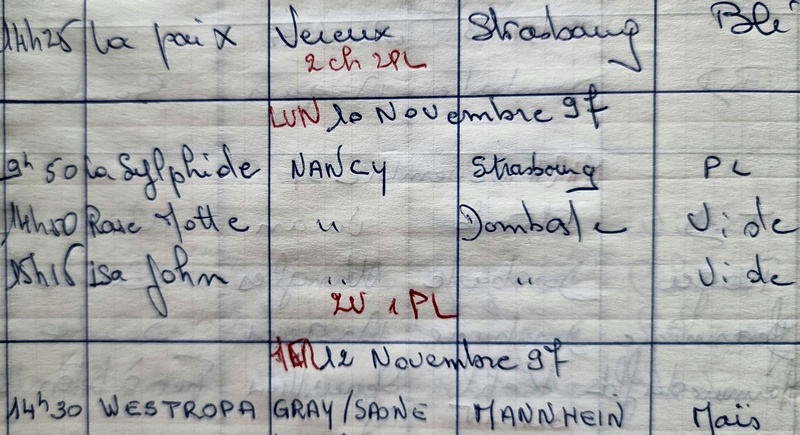 14h25 La paix Vereux Strasbourg Blé
2 ch 2PL
LUN 10 Novembre 97
9h50 La Sylphide NANCY Strasbourg PL
14h50 Rose Motte " Dombasle Vide
15h15 Isa John " " Vide
2V 1 PL
12 Novembre 97
14h30 WESTROPA GRAY/SAONE MANNHEIN Maïs